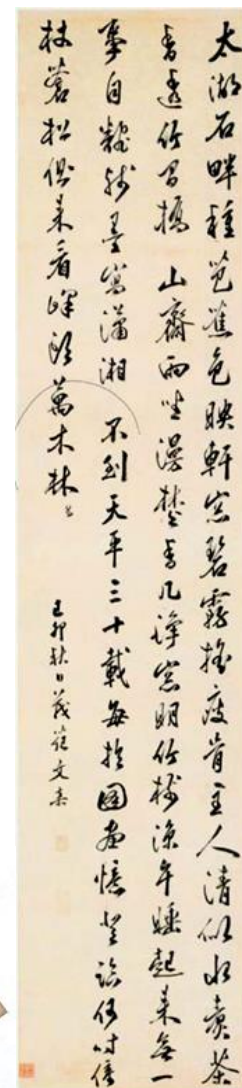 太湖石畔種芭蕉色映軒窓碧霧搖瘦骨主人清似水煮茶
香透竹間橋 山齋雨坐漫焚香几淨窓明竹樹涼午睡起來無一
事自翻殘墨寫瀟湘 不到天平三十載每於圖畫憶登臨何時倚
杖蒼松側來看峰頭萬木林
己卯秋日茂苑文